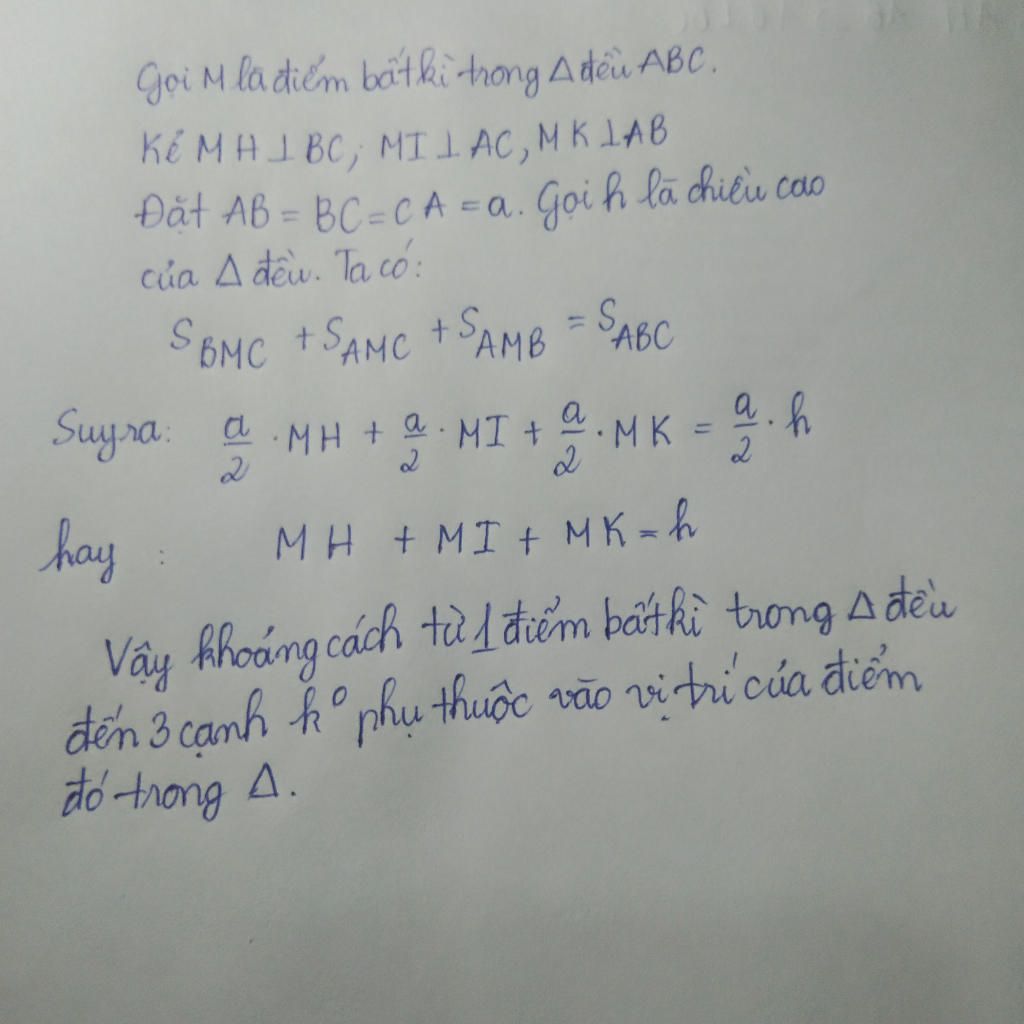 Gọi M là điểm bất kì trong Δ đều ABC.
Kẻ MH ⊥ BC, MI ⊥ AC, MK ⊥ AB
Đặt AB = BC = CA = a. Gọi h là chiều cao
của Δ đều. Ta có:
S_BMC + S_AMC + S_AMB = S_ABC
Suy ra: a/2 · MH + a/2 · MI + a/2 · MK = a/2 · h
hay : MH + MI + MK = h
Vậy khoảng cách từ 1 điểm bất kì trong Δ đều
đến 3 cạnh k° phụ thuộc vào vị trí của điểm
đó trong Δ.